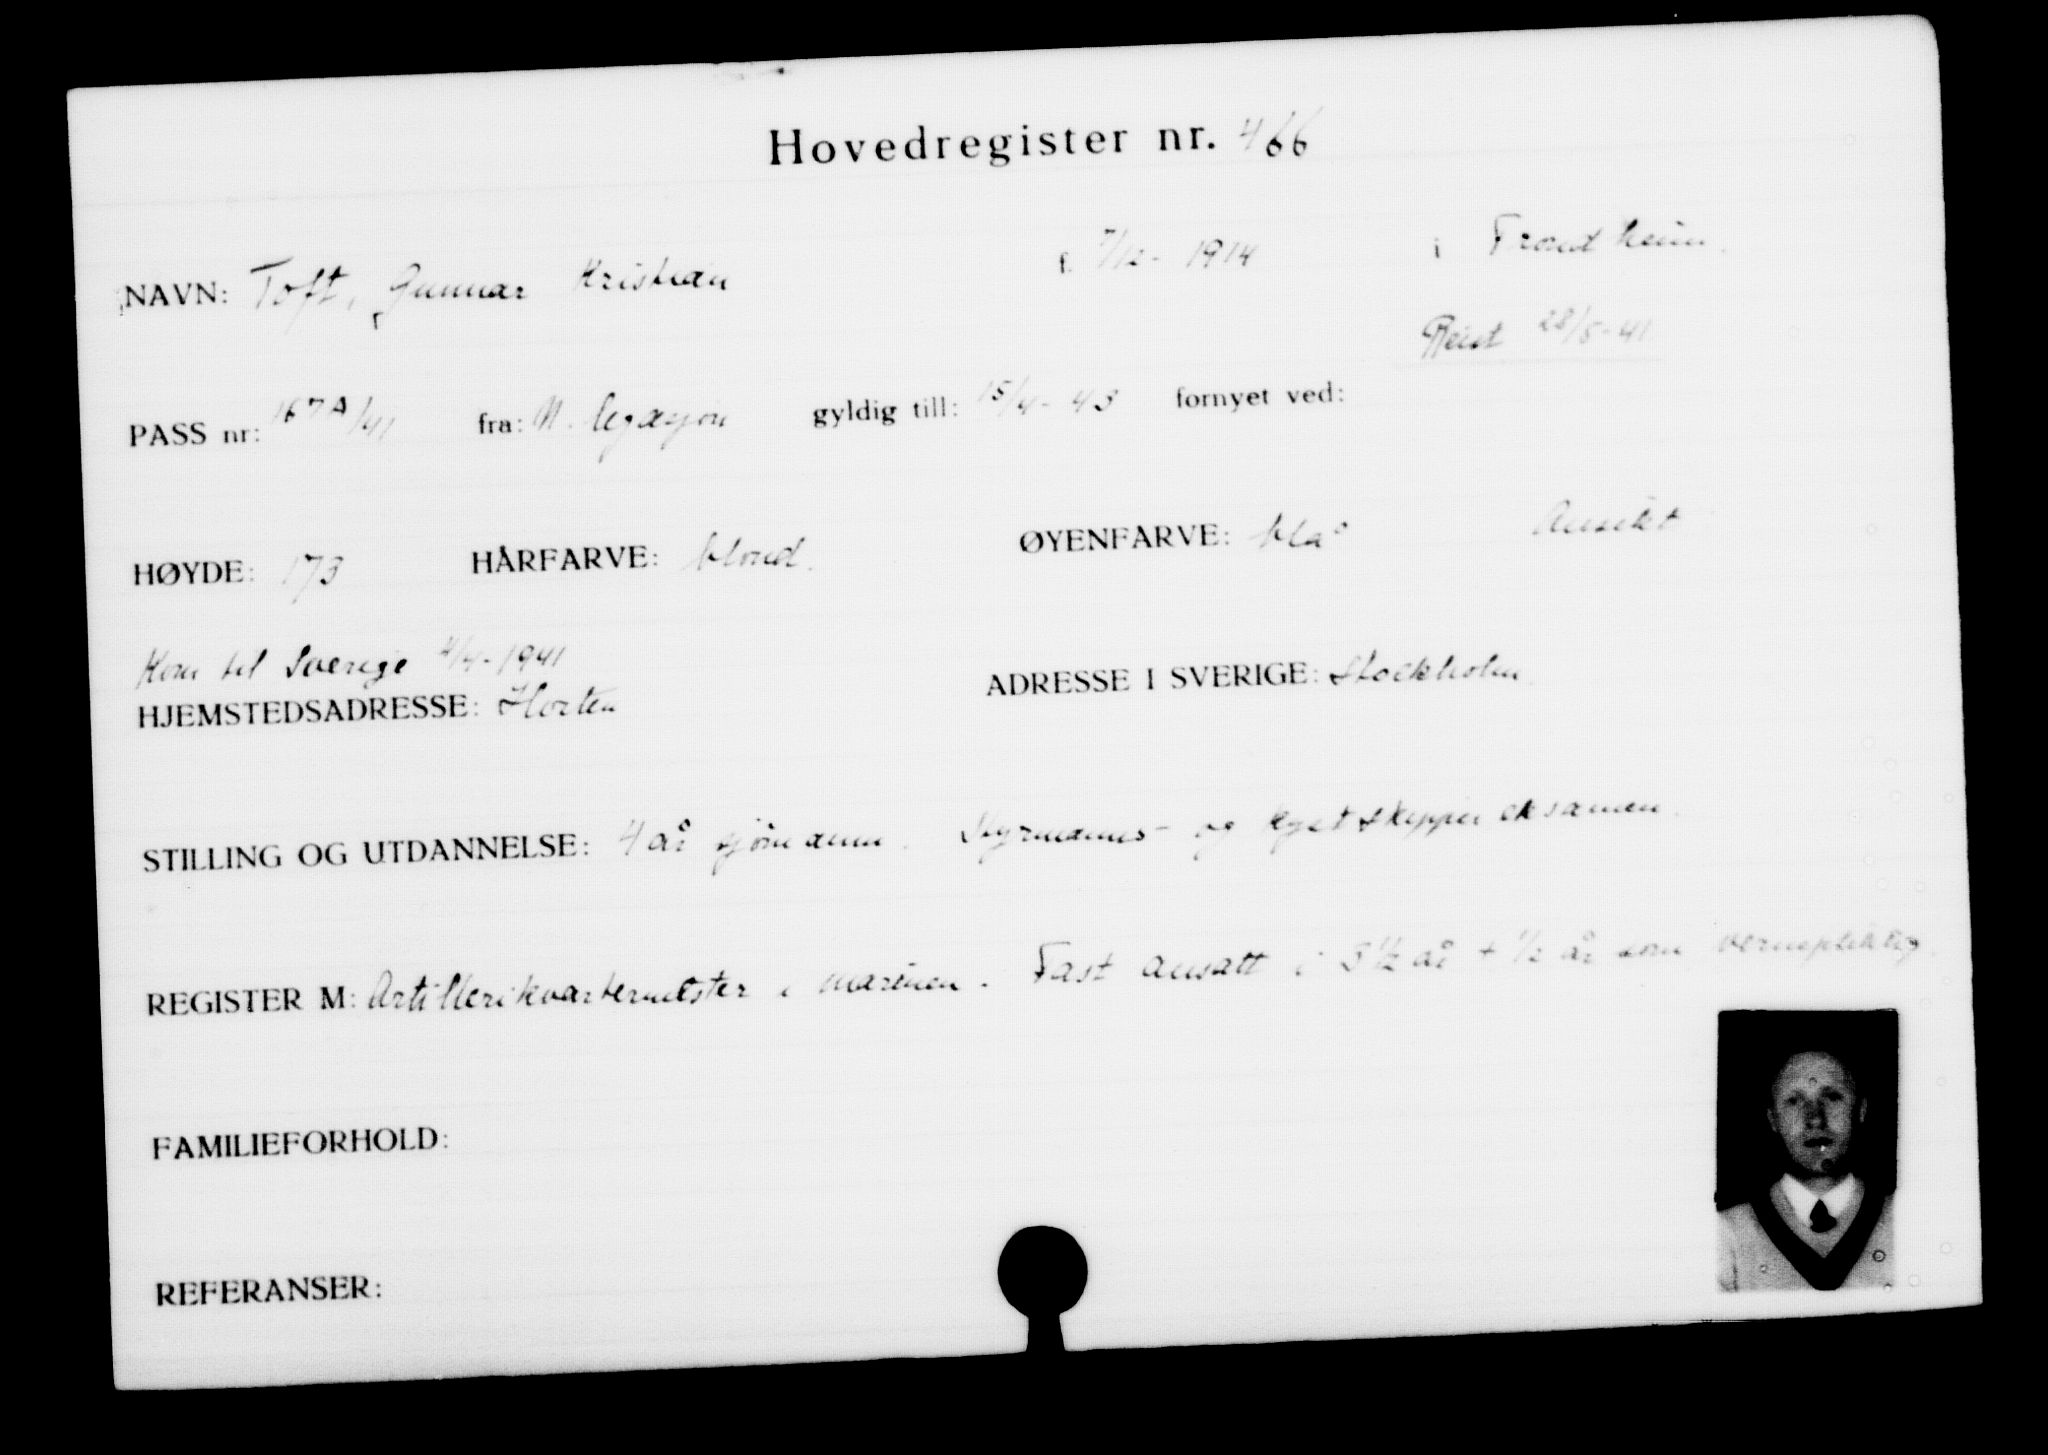 Hovedregister nr. 466
NAVN: Toft, Gunnar Kristian f. 7/12- 1914 i Trondheim.
Reist 28/5-41
PASS nr: 167A/41 fra: N. legasjon gyldig till: 15/4- 43 fornyet ved:
HØYDE: 173 HÅRFARVE: blond. ØYENFARVE: blå Ansikt
Kom til Sverige 4/4-1941
HJEMSTEDSADRESSE: Horten ADRESSE I SVERIGE: Stockholm.
STILLING OG UTDANNELSE: 4 år sjømann. Styrmanns- og kystskipper eksamen.
REGISTER M: Artillerikvartermester i marinen. Fast ansatt i 3 1/2 år + 1/2 år som vernepliktig.
FAMILIEFORHOLD:
REFERANSER: